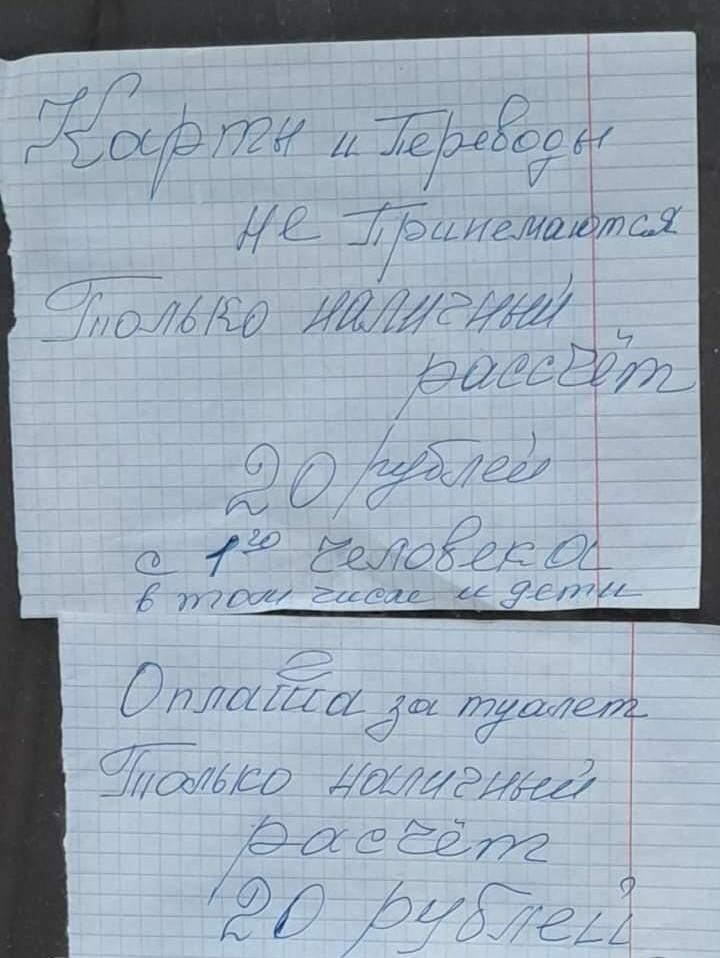 Карты и Переводы
не Принемаются
Только наличный
рассчёт
20 рублей
с 1го человека
в том числе и дети
Оплата за туалет
Только наличный
расчёт
20 рублей